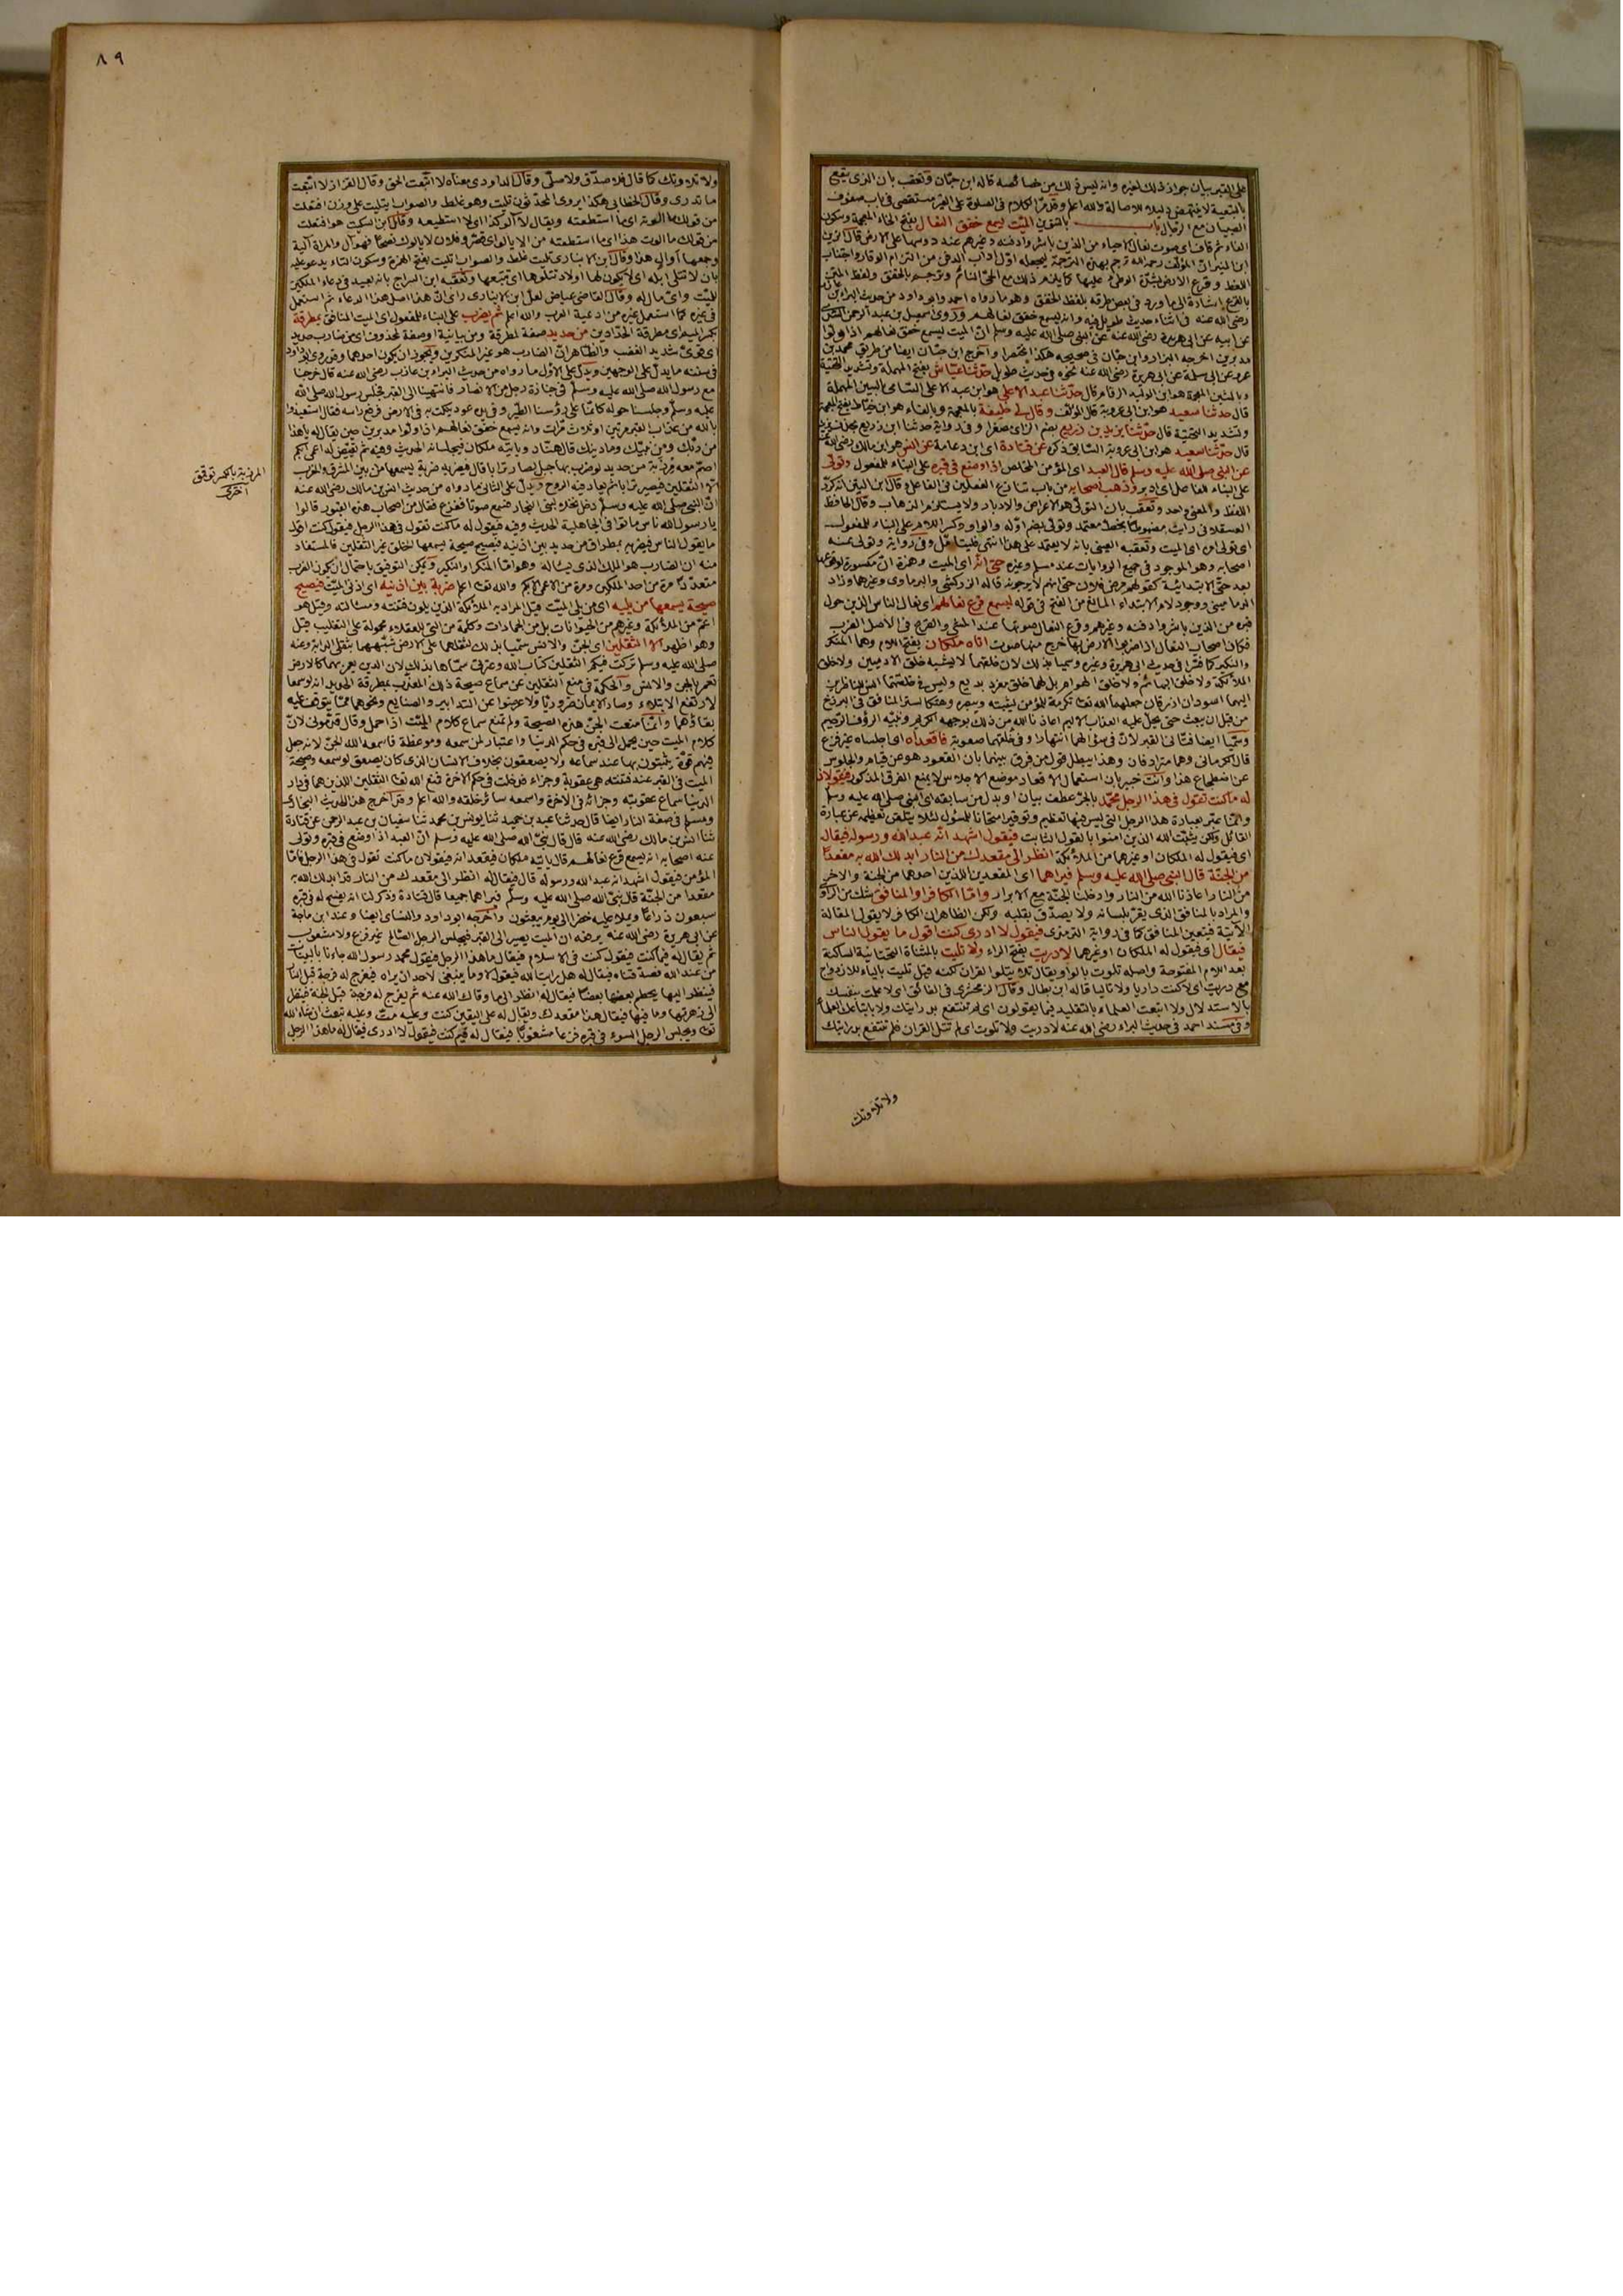 على القبر بيان جواز ذلك لغيره وانه ليس ذلك من خصائصه قاله ابن حبان وتعقب بان الذي يقع
بالتبعية لا ينتهض دليلا للاصالة والله اعلم وقد مر الكلام في الصلوة على القبر مستقصى في باب صفوف
الصبيان مع الرجال باب بالتنوين الميّت يسمع خفق النعال بفتح الخاء المعجمة وسكون
الفاء ثم قاف اي صوت نعال الاحياء من الذين باشروا دفنه وغيرهم عند دوسها على الارض قال الزين
ابن المنير ان المؤلف رحمه الله ترجم بهذه الترجمة ليجعله اول اداب الدفن من التزام الوقار واجتناب
اللغط وقرع الارض بشدّة الوطئ عليها كما يلزم ذلك مع الحيّ النائم وترجم بالخفق ولفظ المتن
بالقرع اشارة الى ما ورد في بعض طرقه بلفظ الخفق وهو ما رواه احمد وابو داود من حديث البراء بن عازب
رضي الله عنه في اثناء حديث طويل فيه وانه ليسمع خفق نعالهم وروى اسمعيل بن عبد الرحمن السدي
عن ابيه عن ابي هريرة رضي الله عنه عن النبي صلى الله عليه وسلم انّ الميت ليسمع خفق نعالهم اذا ولوا
مدبرين اخرجه البزار وابن حبّان في صحيحه هكذا مختصرا واخرج ابن حبّان ايضا من طريق محمد بن
عمرو عن ابي سلمة عن ابي هريرة رضي الله عنه نحوه في حديث طويل حدّثنا عيّاش بفتح المهملة وتشديد التحتية
وبالشين المعجمة هو ابن الوليد الرقام قال حدّثنا عبد الاعلى هو ابن عبد الاعلى السامي بالسين المهملة
قال حدثنا سعيد هو ابن ابي عروبة قال المؤلف وقال لي خليفة بالمعجمة وبالفاء هو ابن خيّاط بفتح المعجمة
وتشديد التحتية قال حدّثنا يزيد بن زريع بضم الزاي مصغرا وفي رواية حدثنا ابن زريع بحذف يزيد
قال حدّثنا سعيد هو ابن ابي عروبة السّابق ذكره عن قتادة اي ابن دعامة عن انس هو ابن مالك رضي الله عنه
عن النبي صلى الله عليه وسلم قال العبد اي المؤمن المخلص اذا وضع في قبره على البناء للمفعول وتولى
على البناء للفاعل اي ادبر وذهب اصحابه من باب تنازع الفعلين في الفاعل وقال ابن التين انه كرّر
اللفظ والمعنى واحد وتعقب بان التولي هو الاعراض والادبار ولا يستلزم الذهاب وقال الحافظ
العسقلاني رايت مضبوطا بخط معتمد وتولي بضم اوله والواو وكسر اللام على البناء للمفعول
اي تولى امره اي الميت وتعقبه العيني بانه لا يعتمد على هذا انتهى فليتأمّل وفي رواية وتولى عنه
اصحابه وهو الموجود في جميع الروايات عند مسلم وغيره حتى انه اي الميت وهمزة انّ مكسورة لوقوعها
بعد حتى الابتدائية كقولهم مرض فلان حتى انهم لا يرجونه قاله الزركشي والبرماوي وغيرهما وزاد
الدماميني ووجود لام الابتداء المانع من الفتح في قوله ليسمع قرع نعالهم اي نعال الناس الذين حول
قبره من الذين باشروا دفنه وغيرهم وقرع النعال صوتها عند المشي والقرع في الاصل الضرب
فكان اصحاب النعال اذا ضربوا الارض بها خرج منها صوت اتاه ملكان بفتح اللام وهما المنكر
والنكير كما فسّرا في حديث ابي هريرة وغيره وسميا بذلك لان خلقهما لا يشبه خلق الادميين ولا خلق
الملائكة ولا خلق البهائم ولا خلق الهوام بل لهما خلق مفرد بديع وليس في خلقتهما انس للناظرين
اليهما اسودان ازرقان جعلهما الله تعالى تكرمة للمؤمن ليثبته ويبصره وهتكا لستر المنافق في البرزخ
من قبل ان يبعث حتى يحل عليه العذاب الاليم اعاذنا الله من ذلك بوجهه الكريم ونبيّه الرؤف الرحيم
وسمّيا ايضا فتّاني القبر لانّ في سؤالهما انتهارا وفي خلقتهما صعوبة فاقعداه اي اجلساه غير فزع
قال الكرماني وهما مترادفان وهذا يبطل قول من فرق بينهما بان القعود هو عن قيام والجلوس
عن اضطجاع هذا وانت خبير بان استعمال الاقعاد موضع الاجلاس لا يمنع الفرق المذكور فيقولان
له ما كنت تقول في هذا الرجل محمّد بالجرّ عطف بيان او بدل من سابقه اي النبي صلى الله عليه وسلم
وانّما عبّر بعبارة هذا الرجل التي ليس فيها تعظيم وتوقير امتحانا للمسؤل لئلا يتلقن تعظيمه عن عبارة
القائل ولكن يثبّت الله الذين امنوا بالقول الثابت فيقول اشهد انّه عبد الله ورسوله فيقال
اي فيقول له الملكان او غيرهما من الملائكة انظر الى مقعدك من النار ابدلك الله به مقعدا
من الجنّة قال النبي صلى الله عليه وسلم فيراهما اي المقعدين اللذين احدهما من الجنة والاخر
من النار اعاذنا الله من النار وادخلنا الجنّة مع الابرار وامّا الكافر او المنافق شك من الراوي
والمراد بالمنافق الذي يقرّ بلسانه ولا يصدّق بقلبه ولكن الظاهر ان الكافر لا يقول المقالة
الآتية فتعين المنافق كما في رواية الترمذي فيقول لا ادري كنت اقول ما يقول الناس
فيقال اي فيقول له الملكان او غيرهما لا دريت بفتح الراء ولا تليت بالمثناة التحتانية الساكنة
بعد اللام المفتوحة واصله تلوت بالواو يقال تلا يتلوا القران لكنه قيل تليت بالياء للازدواج
مع دريت اي لا كنت داريا ولا تاليا قاله ابن بطال وقال الزمخشري في الفائق اي لا علمت بنفسك
بالاستدلال ولا اتبعت العلماء بالتقليد فيما يقولون اي لم تنتفع بدرايتك ولا باتباعك العلماء
وفي مسند احمد في حديث البراء رضي الله عنه لا دريت ولا تلوت اي لم تتل القران فلم تنتفع بدرايتك
ولا تلاوتك
٨٩
ولا تلاوتك كما قال فلا صدّق ولا صلّى وقال الداودي معناه لا اتّبعت الحق وقال القزاز لا اتّبعت
ما تدري وقال الخطابي هكذا يروى المحدّثون تليت وهو غلط والصواب يتليت على وزن افتعلت
من قولك ما الوته اي ما استطعته ويقال لا آلو كذا اي لا استطيعه وقال ابن السكيت هو افتعلت
من قولك ما الوت هذا اي ما استطعته من الا يالو اي قصّر وفلان لا يالوك نصحًا فهو آل والمراة آلية
وجمعها اوالي هذا وقال ابن الانباري تليت غلط والصواب اتليت بفتح الهمزة وسكون التاء يدعو عليه
بان لا تتلى ابله اي لا يكون لها اولاد تتلوها اي تتبعها وتعقبه ابن السراج بانه بعيد في دعاء الملكين
للميّت واي مال له وقال القاضي عياض لعلّ ابن الانباري راى انّ هذا اصل هذا الدعاء ثم استعمل
في غيره كما استعمل غيره من ادعية العرب والله اعلم ثم يضرب على البناء للمفعول اي الميت المنافق بمطرقة
بكسر الميم اي مطرقة الحدّادين من حديد صفة لمطرقة ومن بيانية او صفة لمحذوف اي من ضارب حديد
اي قويّ شديد الغضب والظّاهر انّ الضارب هو غير المنكرين ويجوز ان يكون احدهما وقد روى ابو داود
في سننه ما يدلّ على الوجهين ويدلّ على الاول ما رواه من حديث البراء بن عازب رضي الله عنه قال خرجنا
مع رسول الله صلى الله عليه وسلّم في جنازة رجل من الانصار فانتهينا الى القبر فجلس رسول الله صلى الله
عليه وسلّم وجلسنا حوله كانّما على رؤسنا الطّير وفي يده عود ينكت به في الارض فرفع راسه فقال استعيذوا
بالله من عذاب القبر مرتين او ثلاث مرّات وانه ليسمع خفق نعالهم اذا ولوا مدبرين حين يقال له يا هذا
من ربّك ومن نبيّك وما دينك قال هنّاد وياتيه ملكان فيجلسانه الحديث وفيه ثم يقيّض له اعمى ابكم
اصمّ معه مرزبّة من حديد لو ضرب بها جبل لصار ترابا قال فيضربه ضربة يسمعها من بين المشرق والمغرب
الا الثقلين فيصير ترابا ثم يعاد فيه الروح ويدلّ على الثاني ما رواه من حديث انس بن مالك رضي الله عنه
انّ النبي صلى الله عليه وسلّم دخل نخلا لبني النجار فسمع صوتا ففزع فقال من اصحاب هذه القبور قالوا
يا رسول الله ناس ماتوا في الجاهلية الحديث وفيه فيقول له ما كنت تقول في هذا الرجل فيقول كنت اقول
ما يقول الناس فيضربه بمطراق من حديد بين اذنيه فيصيح صيحة يسمعها الخلق غير الثقلين فالمستفاد
منه ان الضارب هو الملك الذي يساله وهو امّا المنكر او النكير ويمكن التوفيق باحتمال ان يكون الضرب
متعدّدًا مرة من احد الملكين ومرة من الاعمى الابكم والله تعالى اعلم ضربة بين اذنيه اي اذني الميّت فيصيح
صيحة يسمعها من يليه اي من يلي الميّت قيل المراد به الملائكة الذين يلون فتنته ومسائلته وقيل هو
اعمّ من الملائكة وغيرهم من الحيوانات بل من الجمادات وكلمة من التي للعقلاء محمولة على التغليب قيل
وهو اظهر الا الثقلين اي الجنّ والانس سمّيا بذلك لثقلهما على الارض شبّههما بثقل الدابة وعنه
صلى الله عليه وسلم تركت فيكم الثقلين كتاب الله وعترتي سمّاهما بذلك لان الدين يعمر بهما كالارض
تعمر بالجن والانس والحكمة في منع الثقلين عن سماع صيحة ذلك المعذب بمطرقة الحديد انه لو سمعا
لارتفع الابتلاء وصار الايمان ضروريّا ولاعرضوا عن التدابير والصنايع ونحوهما ممّا يتوقف عليه
بقاؤهما وانّما منعت الجنّ هذه الصيحة ولم تمنع سماع كلام الميّت اذا حمل وقال قدّموني لانّ
كلام الميت حين يحمل الى قبره في حكم الدنيا واعتبار لمن سمعه وموعظة فاسمعه الله الجنّ لانه جعل
فيهم قوّة يثبتون بها عند سماعه ولا يصعقون بخلاف الانسان الذي كان يصعق لو سمعه وصيحة
الميت في القبر عند فتنته هي عقوبة وجزاء فدخلت في حكم الاخرة فمنع الله تعالى الثقلين اللذين هما في دار
الدنيا سماع عقوبته وجزائه في الاخرة واسمعه سائر خلقه والله اعلم وقد اخرج هذا الحديث البخاري
ومسلم في صفة النار ايضا قال حدثنا عبد بن حميد ثنا يونس بن محمد ثنا سفيان بن عبد الرحمن عن قتادة
ثنا انس بن مالك رضي الله عنه قال قال نبيّ الله صلى الله عليه وسلم انّ العبد اذا وضع في قبره وتولى
عنه اصحابه انه ليسمع قرع نعالهم قال ياتيه ملكان فيقعدانه فيقولان ما كنت تقول في هذا الرجل فامّا
المؤمن فيقول اشهد انه عبد الله ورسوله قال فيقال له انظر الى مقعدك من النار قد ابدلك الله به
مقعدا من الجنّة قال نبيّ الله صلى الله عليه وسلّم فيراهما جميعا قال قتادة وذكر لنا انه يفسح له في قبره
سبعون ذراعًا ويملا عليه خضرا الى يوم يبعثون واخرجه ابو داود والنسائي ايضا وعند ابن ماجة
عن ابي هريرة رضي الله عنه يرفعه ان الميت يصير الى القبر فيجلس الرجل الصالح غير فزع ولا مشغوب
ثم يقال له فيما كنت فيقول كنت في الاسلام فيقال ما هذا الرجل فيقول محمد رسول الله جاءنا بالبينات
من عند الله فصدقناه فيقال له هل رايت الله فيقول لا وما ينبغي لاحد ان يراه فيفرج له فرجة قبل النار
فينظر اليها يحطم بعضها بعضًا فيقال له انظر الى ما وقاك الله عنه ثم يفرج له فرجة قبل الجنة فينظر
الى زهرتها وما فيها فيقال هذا مقعدك ويقال له على اليقين كنت وعليه متّ وعليه تبعث ان شاء الله
تعالى ويجلس الرجل السوء في قبره فزعا مشغوبًا فيقال له فيم كنت فيقول لا ادري فيقال له ما هذا الرجل
المرزبة بالكسر